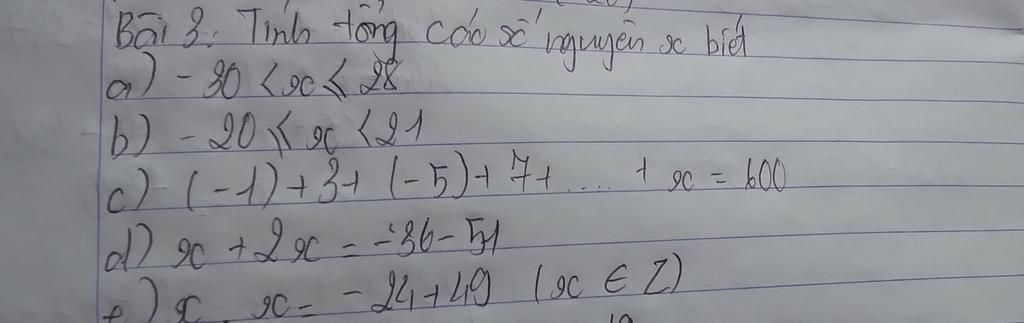 Bài 3: Tính tổng các số nguyên x biết
a) - 30 < x ≤ 28
b) - 20 ≤ x < 21
c) (-1) + 3 + (-5) + 7 + .... + x = 600
d) x + 2x = -36 - 51
e) x x = - 24 + 49 (x ∈ Z)